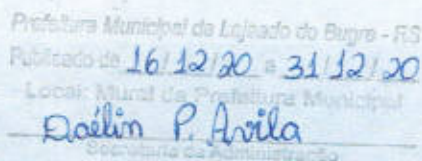 Prefeitura Municipal de Lajeado do Bugre - RS
Publicado de 16/12/20 a 31/12/20
Local: Mural da Prefeitura Municipal
Daélin P. Avila
Secretaria de Administração